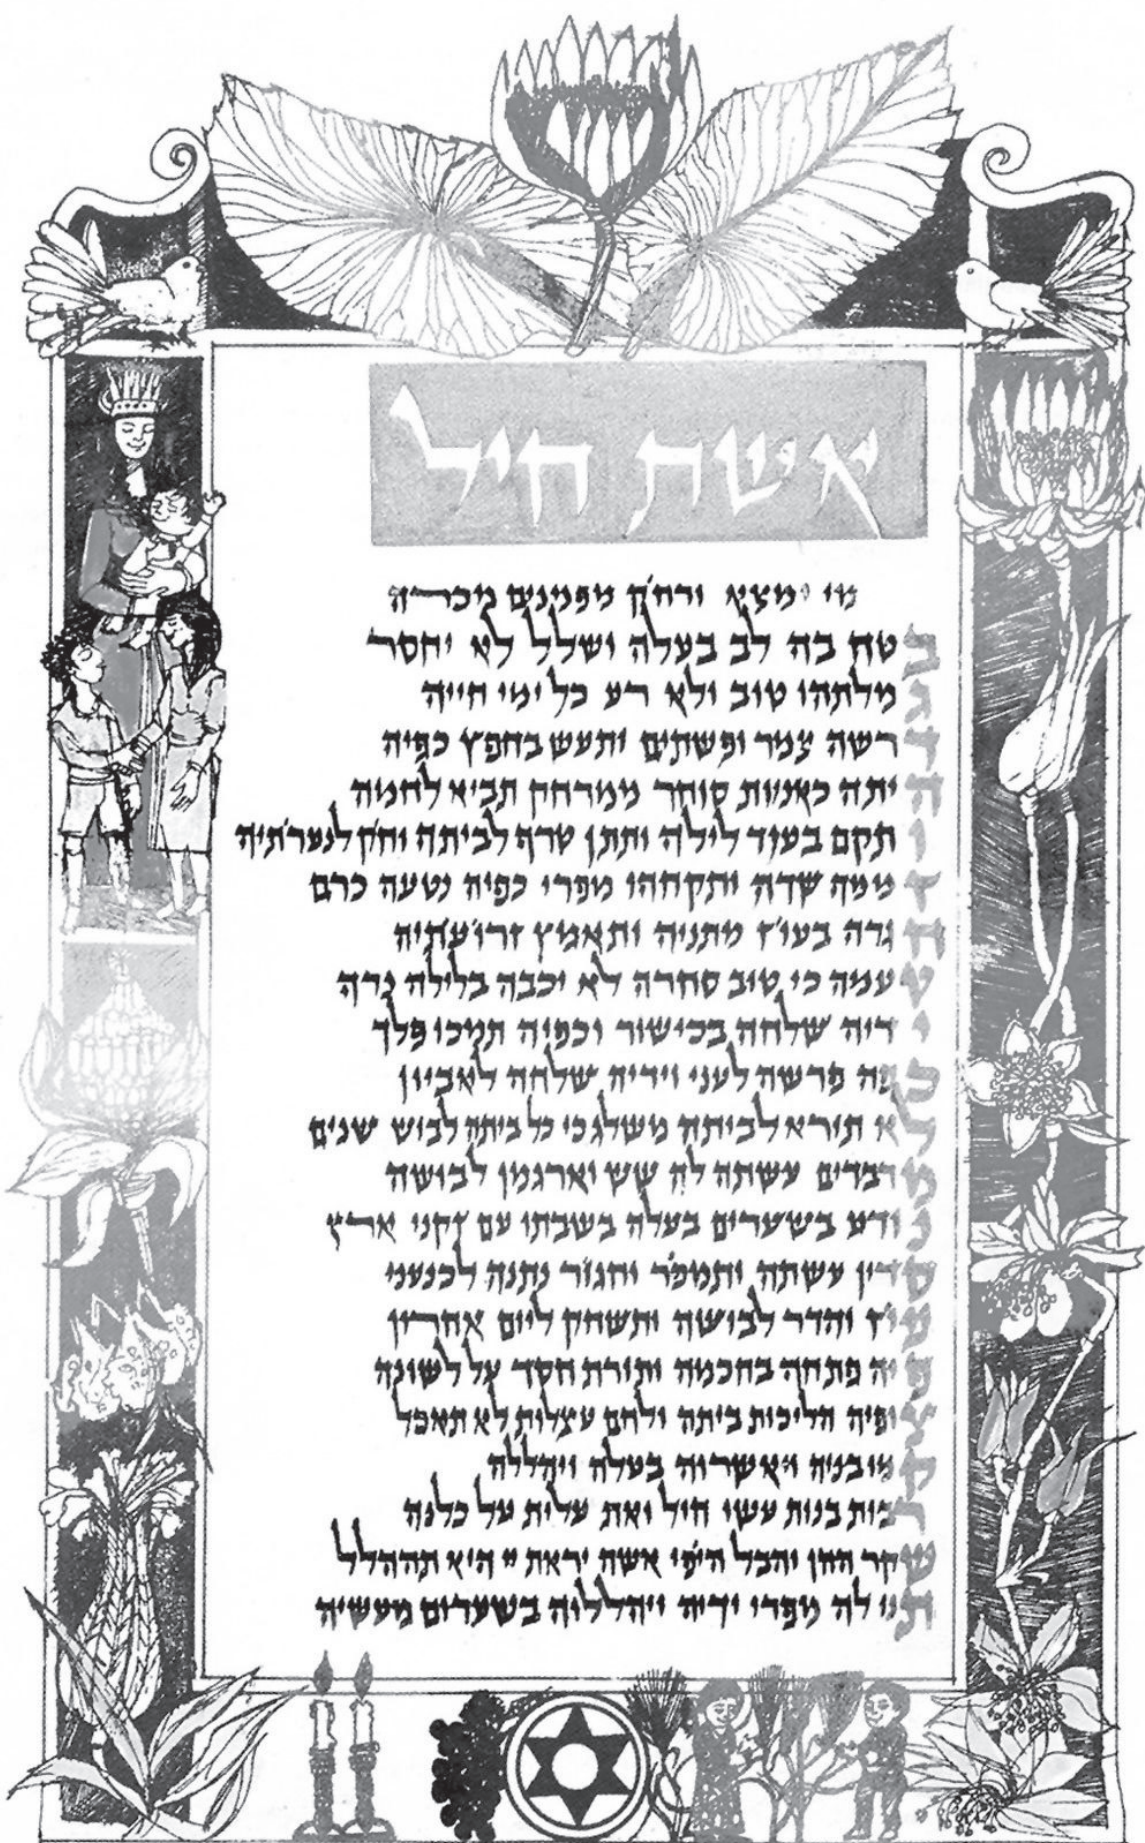 אשת חיל
מי ימצא ורחק מפנינים מכרה
בטח בה לב בעלה ושלל לא יחסר
גמלתהו טוב ולא רע כל ימי חייה
דרשה צמר ופשתים ותעש בחפץ כפיה
היתה כאניות סוחר ממרחק תביא לחמה
ותקם בעוד לילה ותתן טרף לביתה וחק לנערתיה
זממה שדה ותקחהו מפרי כפיה נטעה כרם
חגרה בעוז מתניה ותאמץ זרועתיה
טעמה כי טוב סחרה לא יכבה בלילה נרה
ידיה שלחה בכישור וכפיה תמכו פלך
כפה פרשה לעני וידיה שלחה לאביון
לא תירא לביתה משלג כי כל ביתה לבוש שנים
מרבדים עשתה לה שש וארגמן לבושה
נודע בשערים בעלה בשבתו עם זקני ארץ
סדין עשתה ותמכר וחגור נתנה לכנעני
עוז והדר לבושה ותשחק ליום אחרון
פיה פתחה בחכמה ותורת חסד על לשונה
צופיה הליכות ביתה ולחם עצלות לא תאכל
קמו בניה ויאשרוה בעלה ויהללה
רבות בנות עשו חיל ואת עלית על כלנה
שקר החן והבל היפי אשה יראת יי היא תתהלל
תנו לה מפרי ידיה ויהללוה בשערים מעשיה